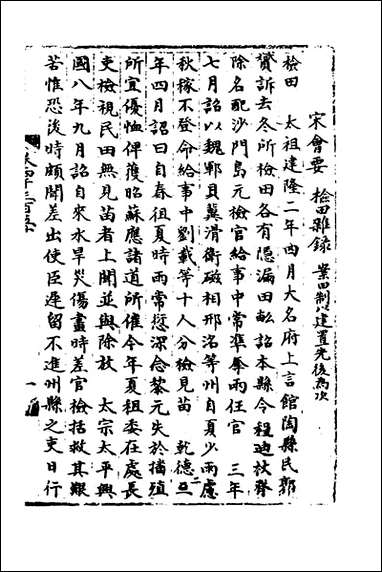 宋會要　檢田雜錄　案田制以建置先後為次
檢田　太祖建隆二年四月大名府上言館陶縣民郭
贇訴去冬所檢田各有隱漏田畝詔本縣令程迪杖脊
除名配沙門島元檢官給事中常準奪兩任官　三年
七月詔以魏鄆貝冀滑衛磁相邢洺等州自夏少雨慮
秋稼不登命給事中劉載等十人分檢見苗　乾德二
年四月詔曰自春徂夏時雨常愆深念黎元失於播殖
所宜優恤俾獲昭蘇應諸道所催今年夏租委在處長
吏檢視民田無見苗者上聞並與除放　太宗太平興
國八年九月詔自來水旱災傷盡時差官檢括救其艱
苦惟恐後時頗聞差出使臣遲留不進州縣之吏日行